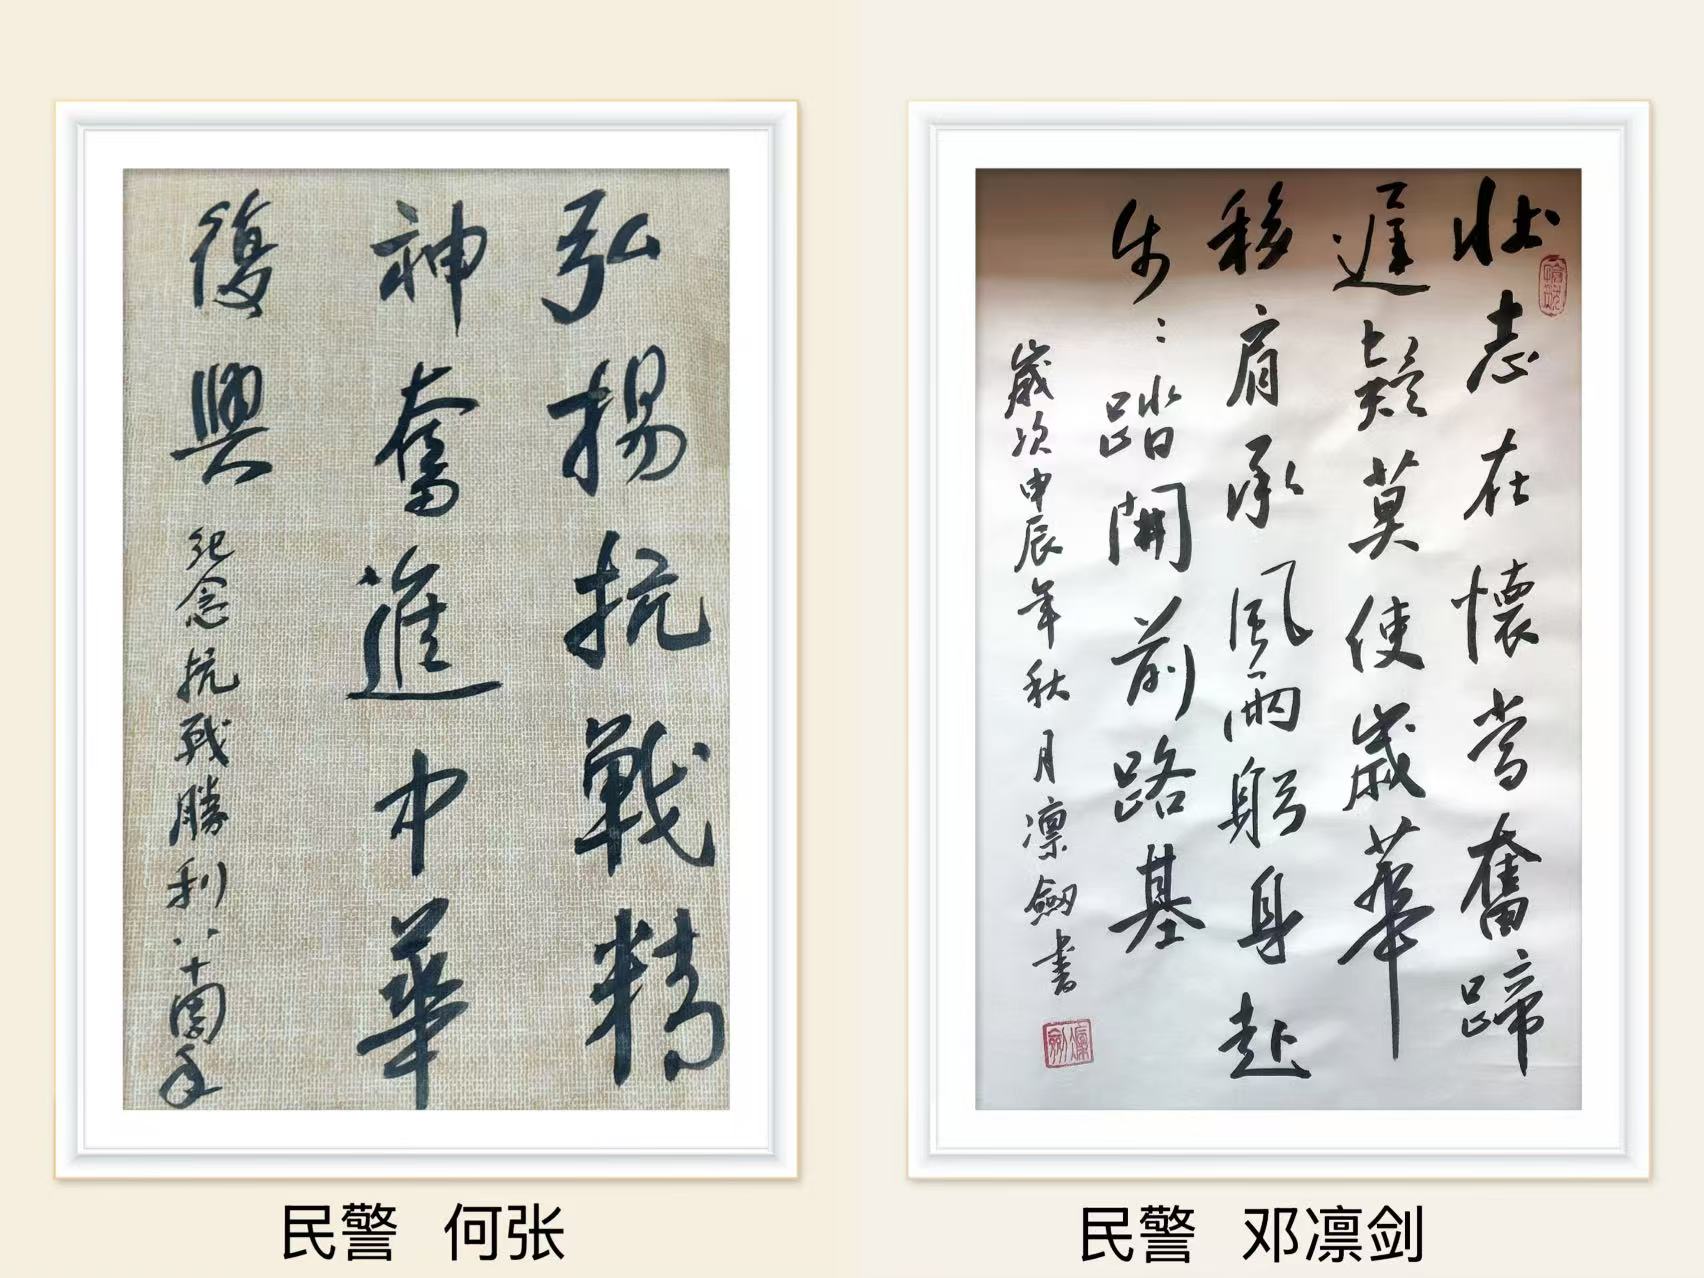 弘揚抗戰精
神奮進中華
復興
紀念抗戰勝利八十周年
民警 何张
壯志在懷當奮蹄
遲疑莫使歲華
移肩承風雨躬身赴
步:踏開前路基
歲次甲辰年秋月凛劍書
民警 邓凛剑